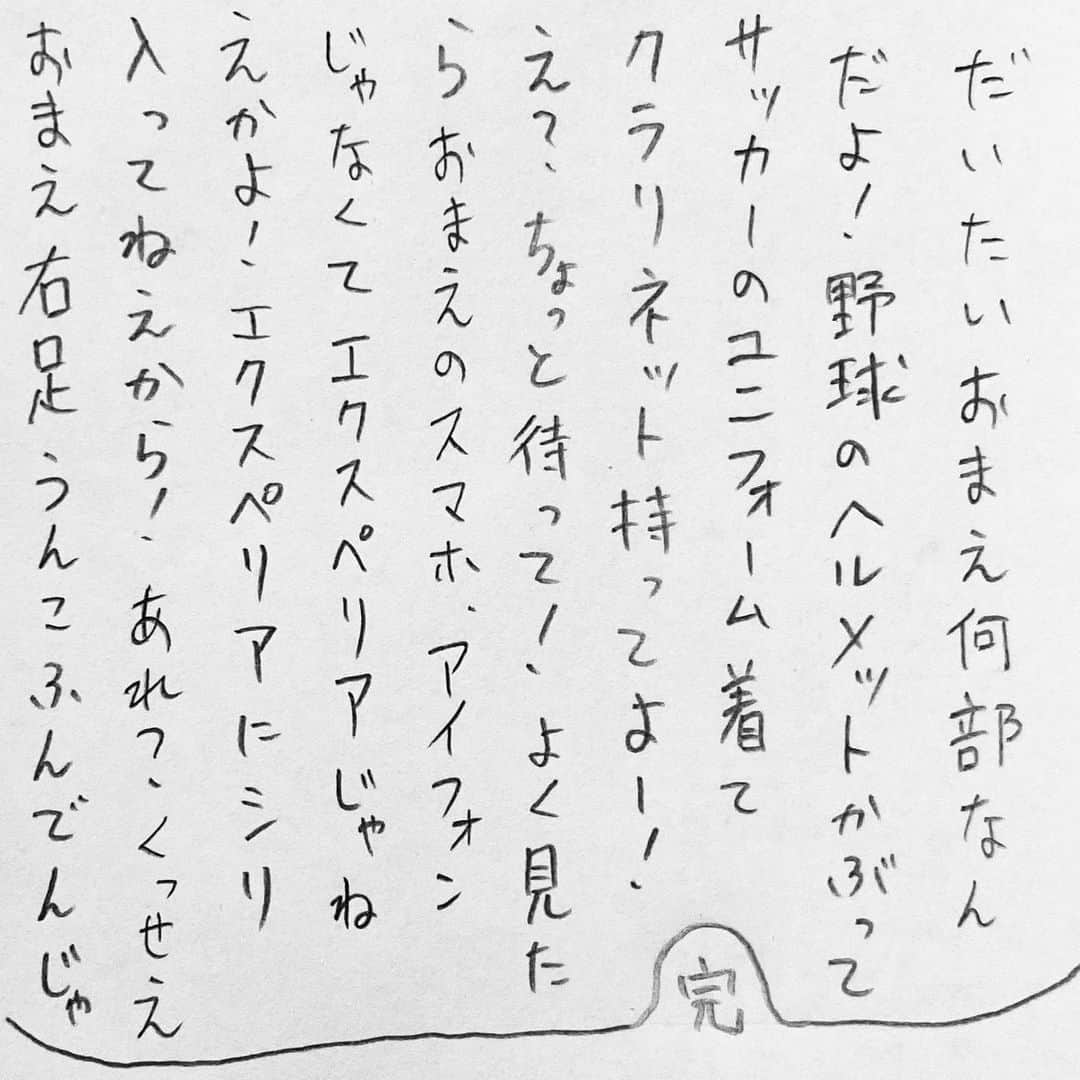 だいたいおまえ何部なん
だよ！野球のヘルメットかぶって
サッカーのユニフォーム着て
クラリネット持ってよー！
え？ちょっと待って！よく見た
らおまえのスマホ、アイフォン
じゃなくてエクスペリアじゃね
えかよ！エクスペリアにシリ
入ってねえから！あれ？くっせえ
おまえ右足うんこふんでんじゃ
完